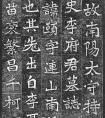 故南陽太守持
史李府君墓誌
字連山南
也其先出自李
苗裔繁昌千柯